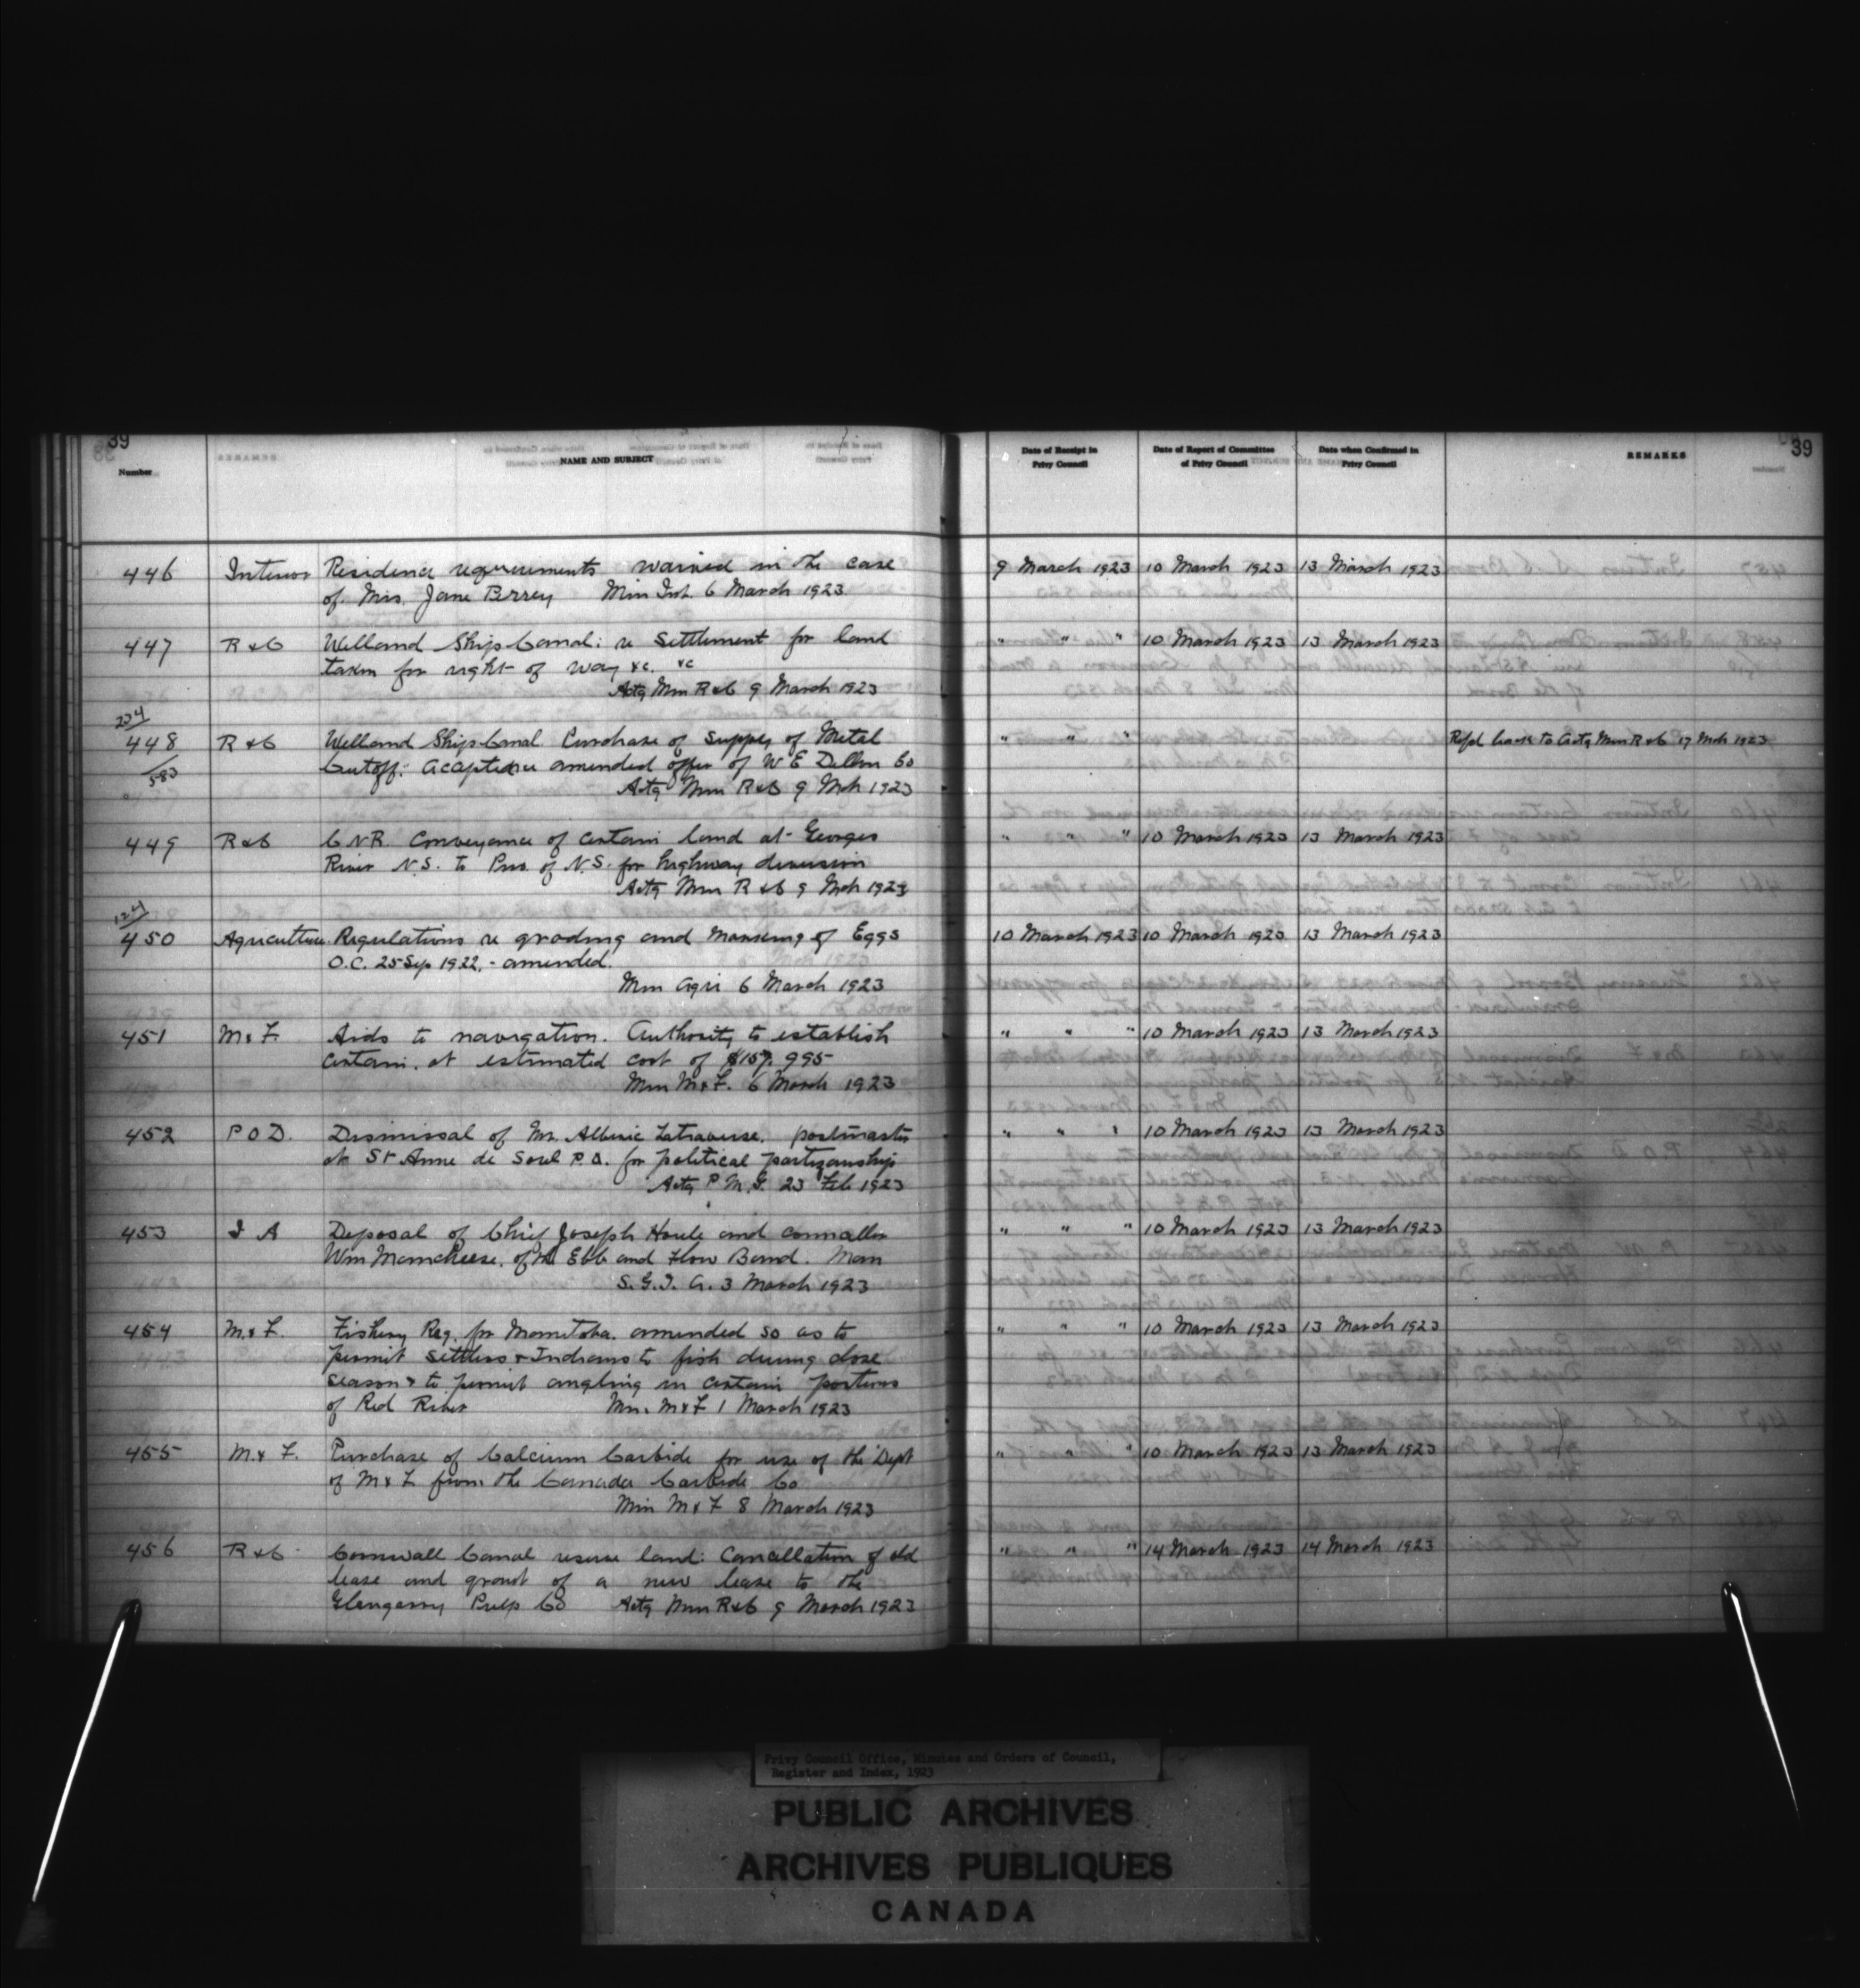 39
39
Number
NAME AND SUBJECT
Date of Receipt in Privy Council
Date of Report of Committee of Privy Council
Date when Confirmed in Privy Council
REMARKS
446 Interior Residence requirements waived in the case 9 March 1923 10 March 1923 13 March 1923
of Mrs. Jane Berrey Min Int. 6 March 1923
447 R & C Welland Ship Canal: re Settlement for land " " " 10 March 1923 13 March 1923
taken for right of way &c. &c
Actg Min R & C 9 March 1923
234
448 R & C Welland Ship Canal Purchase of supply of Metal " " " Refd back to Actg Min R & C 17 Mch 1923
583 Cutoff: acceptance amended offer of W E Dillon Co
Actg Min R & C 9 Mch 1923
449 R & C C N R. Conveyance of certain land at Georges " " " 10 March 1923 13 March 1923
River N.S. to Prov. of N.S. for highway diversion
Actg Min R & C 9 Mch 1923
124
450 Agriculture Regulations re grading and marking of Eggs 10 March 1923 10 March 1923 13 March 1923
O.C. 25 Sep 1922, - amended.
Min Agri 6 March 1923
451 M & F. Aids to navigation. Authority to establish " " " 10 March 1923 13 March 1923
certain. at estimated cost of $157,995
Min M & F. 6 March 1923
452 P O D. Dismissal of Mr. Alberic Latraverse. postmaster " " " 10 March 1923 13 March 1923
at St Anne de Sorel P.O. for political partizanship
Actg P. M. G. 23 Feb 1923
453 I A Deposal of Chief Joseph Houle and councillor " " " 10 March 1923 13 March 1923
Wm Mancheese. of the Ebb and Flow Band. Man
S. G. I. A. 3 March 1923
454 M. & F. Fishery Reg. for Manitoba. amended so as to " " " 10 March 1923 13 March 1923
permit settlers & Indians to fish during close
season & to permit angling in certain portions
of Red River Min. M & F 1 March 1923
455 M. & F. Purchase of Calcium Carbide for use of the Dept " " " 10 March 1923 13 March 1923
of M & F from the Canada Carbide Co
Min M & F 8 March 1923
456 R & C Cornwall Canal reserve land: Cancellation of old " " " 14 March 1923 14 March 1923
lease and grant of a new lease to the
Glengarry Pulp Co Actg Min R & C 9 March 1923
Privy Council Office, Minutes and Orders of Council,
Register and Index, 1923
PUBLIC ARCHIVES
ARCHIVES PUBLIQUES
CANADA